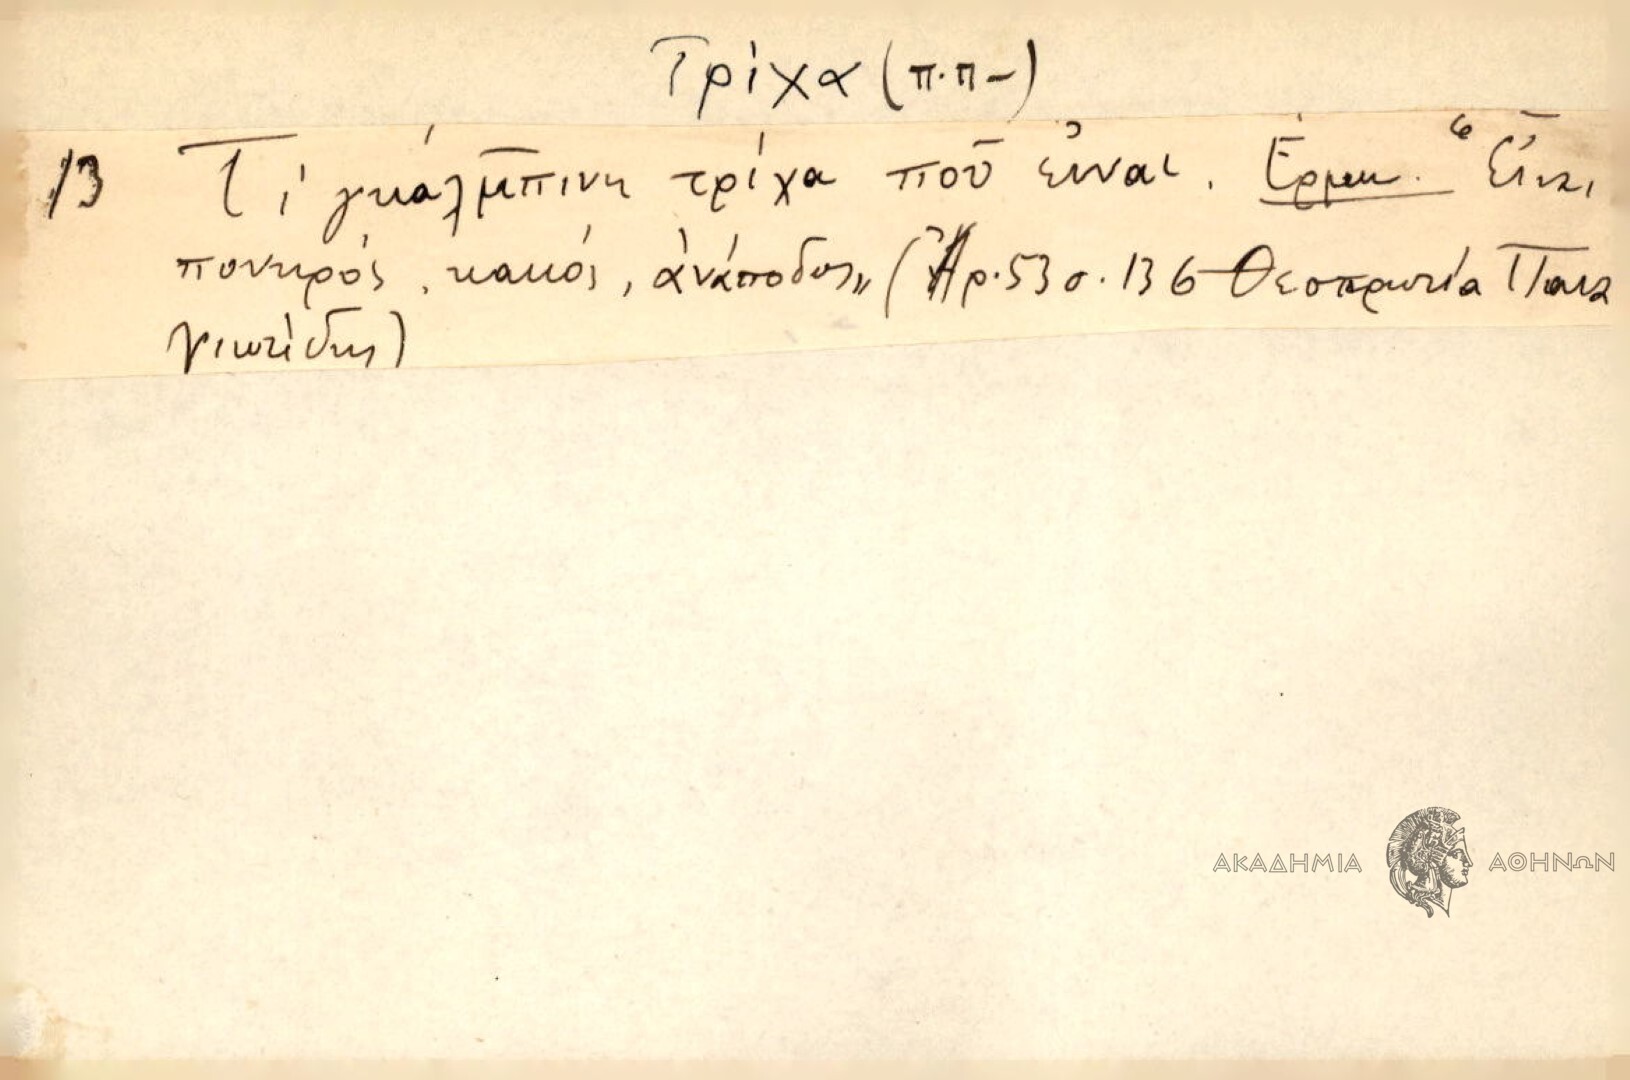 Τρίχα (π.π-)
13 Τί γκάλμπινη τρίχα ποῦ εἶναι. Ἑρμην. "Εἶναι
πονηρός, κακός, ἀνάποδος" (Ἀρ. 53 σ. 136 Θεσπρωτία Πανα
γιωτίδης)
ΑΚΑΔΗΜΙΑ ΑΘΗΝΩΝ